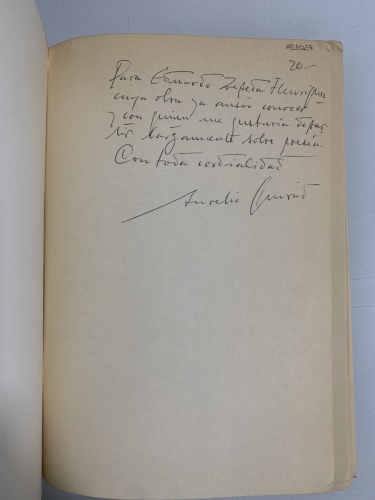 AE3027
20-
Para Eduardo Zepeda Henríquez
cuya obra ya ansío conocer
y con quien me gustaría depar-
tir largamente sobre poesía.
Con toda cordialidad
Aurelio